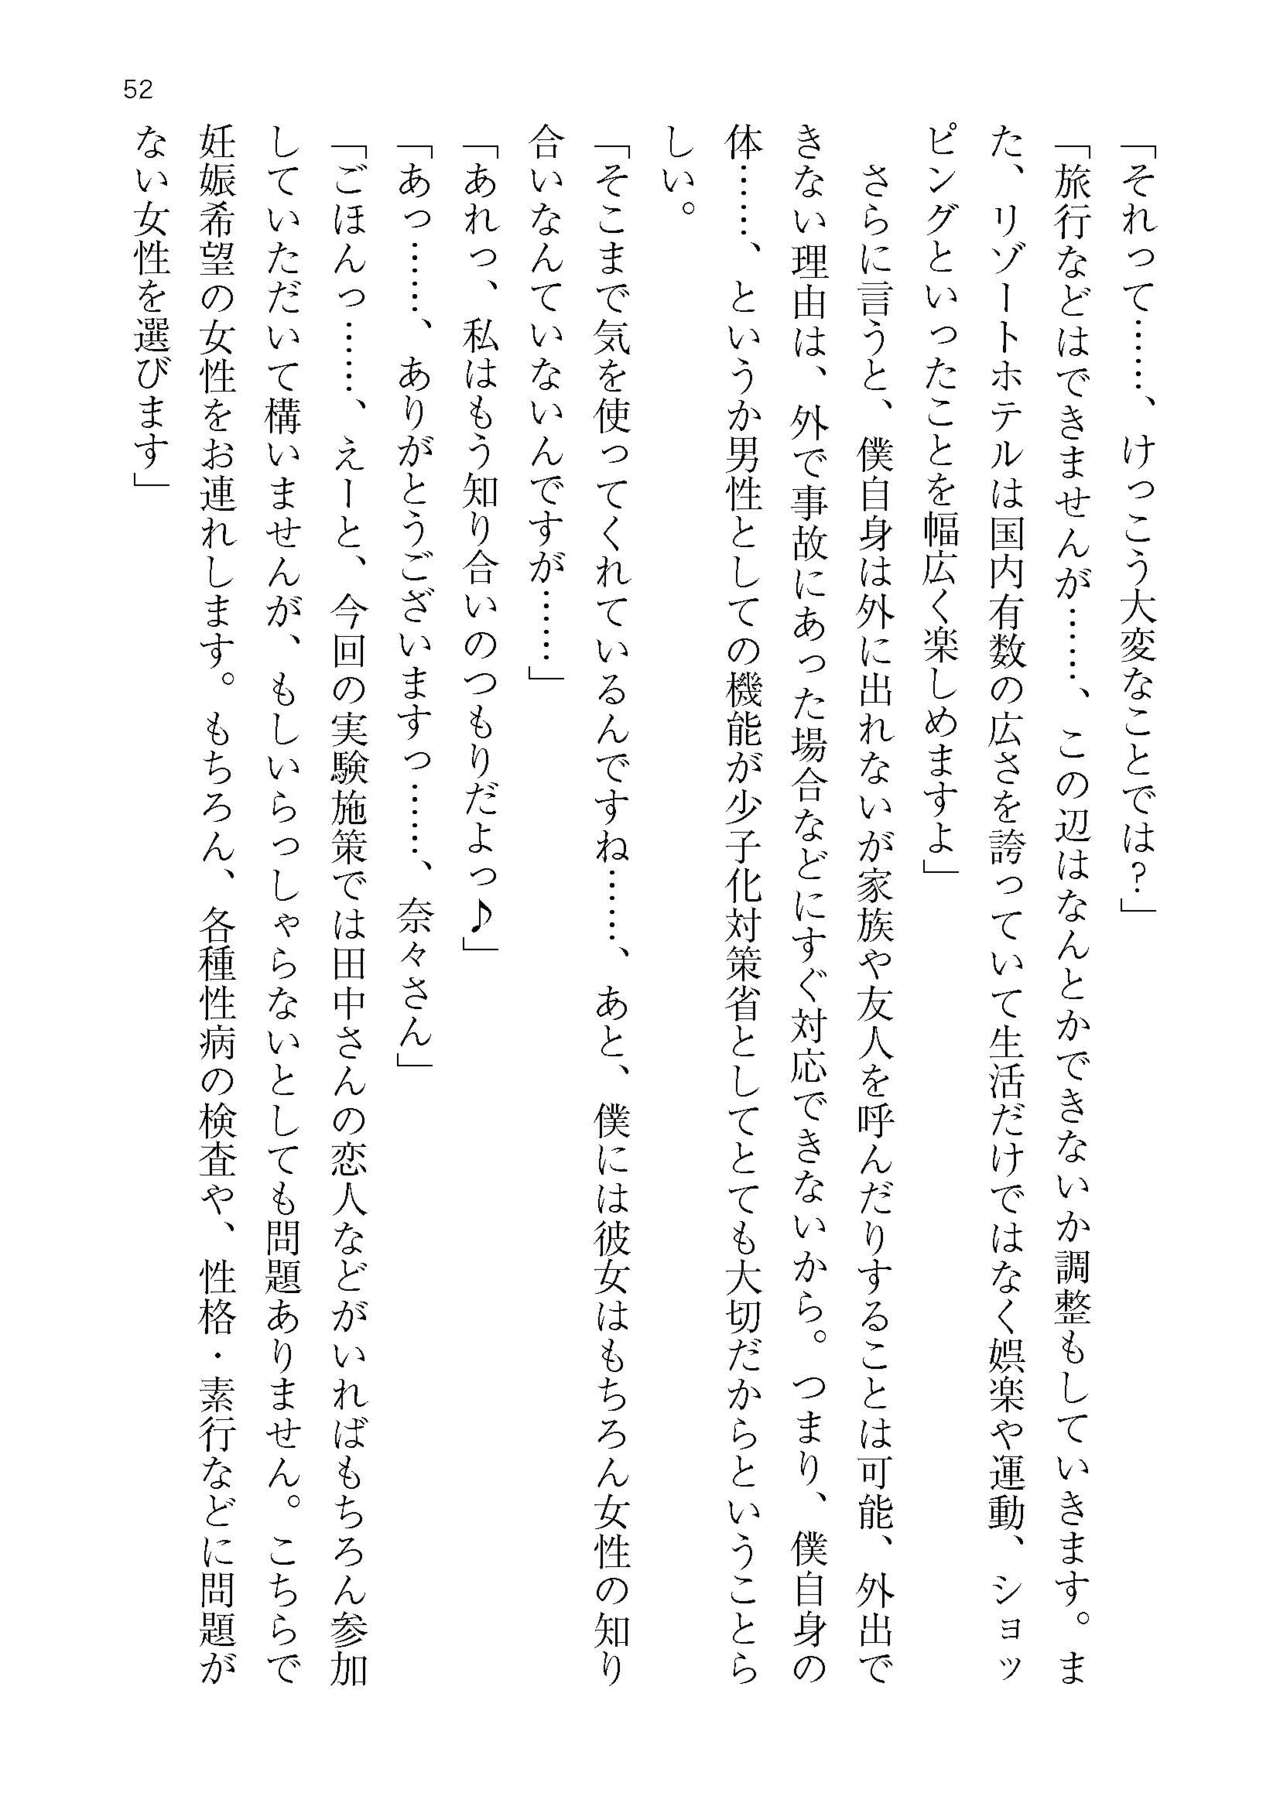 52
「それって……、けっこう大変なことでは？」
「旅行などはできませんが……、この辺はなんとかできないか調整もしていきます。ま
た、リゾートホテルは国内有数の広さを誇っていて生活だけではなく娯楽や運動、ショッ
ピングといったことを幅広く楽しめますよ」
　さらに言うと、僕自身は外に出れないが家族や友人を呼んだりすることは可能、外出で
きない理由は、外で事故にあった場合などにすぐ対応できないから。つまり、僕自身の
体……、というか男性としての機能が少子化対策省としてとても大切だからということら
しい。
「そこまで気を使ってくれているんですね……、あと、僕には彼女はもちろん女性の知り
合いなんていないんですが……」
「あれっ、私はもう知り合いのつもりだよっ♪」
「あっ……、ありがとうございますっ……、奈々さん」
「ごほんっ……、えーと、今回の実験施策では田中さんの恋人などがいればもちろん参加
していただいて構いませんが、もしいらっしゃらないとしても問題ありません。こちらで
妊娠希望の女性をお連れします。もちろん、各種性病の検査や、性格・素行などに問題が
ない女性を選びます」